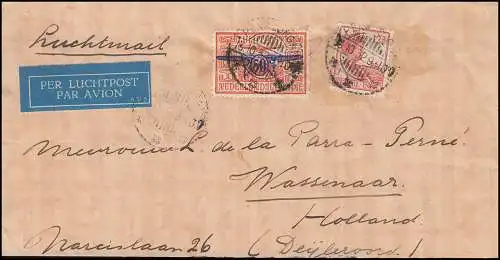 Luchtmail
PER LUCHTPOST
PAR AVION
30
Mevrouw L. de la Parra - Perné.
Wassenaar.
Holland.
Narcislaan 26 (Deijleroord.)